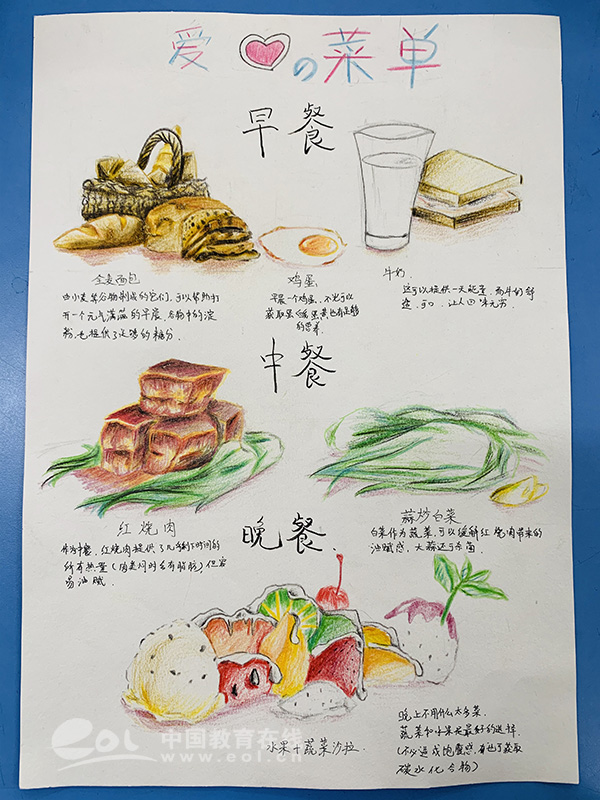 爱の菜单
早餐
全麦面包
由小麦等谷物制成的它们，可以帮助打
开一个元气满满的早晨，谷物中的淀
粉，也提供了足够的糖分．
鸡蛋
早晨一个鸡蛋，不光可以
蛋黄也有足够
的营养．
牛奶
这可以提供一天能量，
可口，让人回味无穷
中餐
红烧肉
作为中餐，红烧肉提供了几乎剩下时间的
所有热量（肉类同时含有脂肪）但容
易油腻．
蒜炒白菜
白菜作为蔬菜，可以缓解红烧肉带来的
油腻感，大蒜还可杀菌．
晚餐．
水果＋蔬菜沙拉．
晚上不用什么大多菜．
蔬菜和水果是最好的选择．
（不必造成饱腹感，有也可获取
碳水化合物）
eol 中国教育在线
www.eol.cn